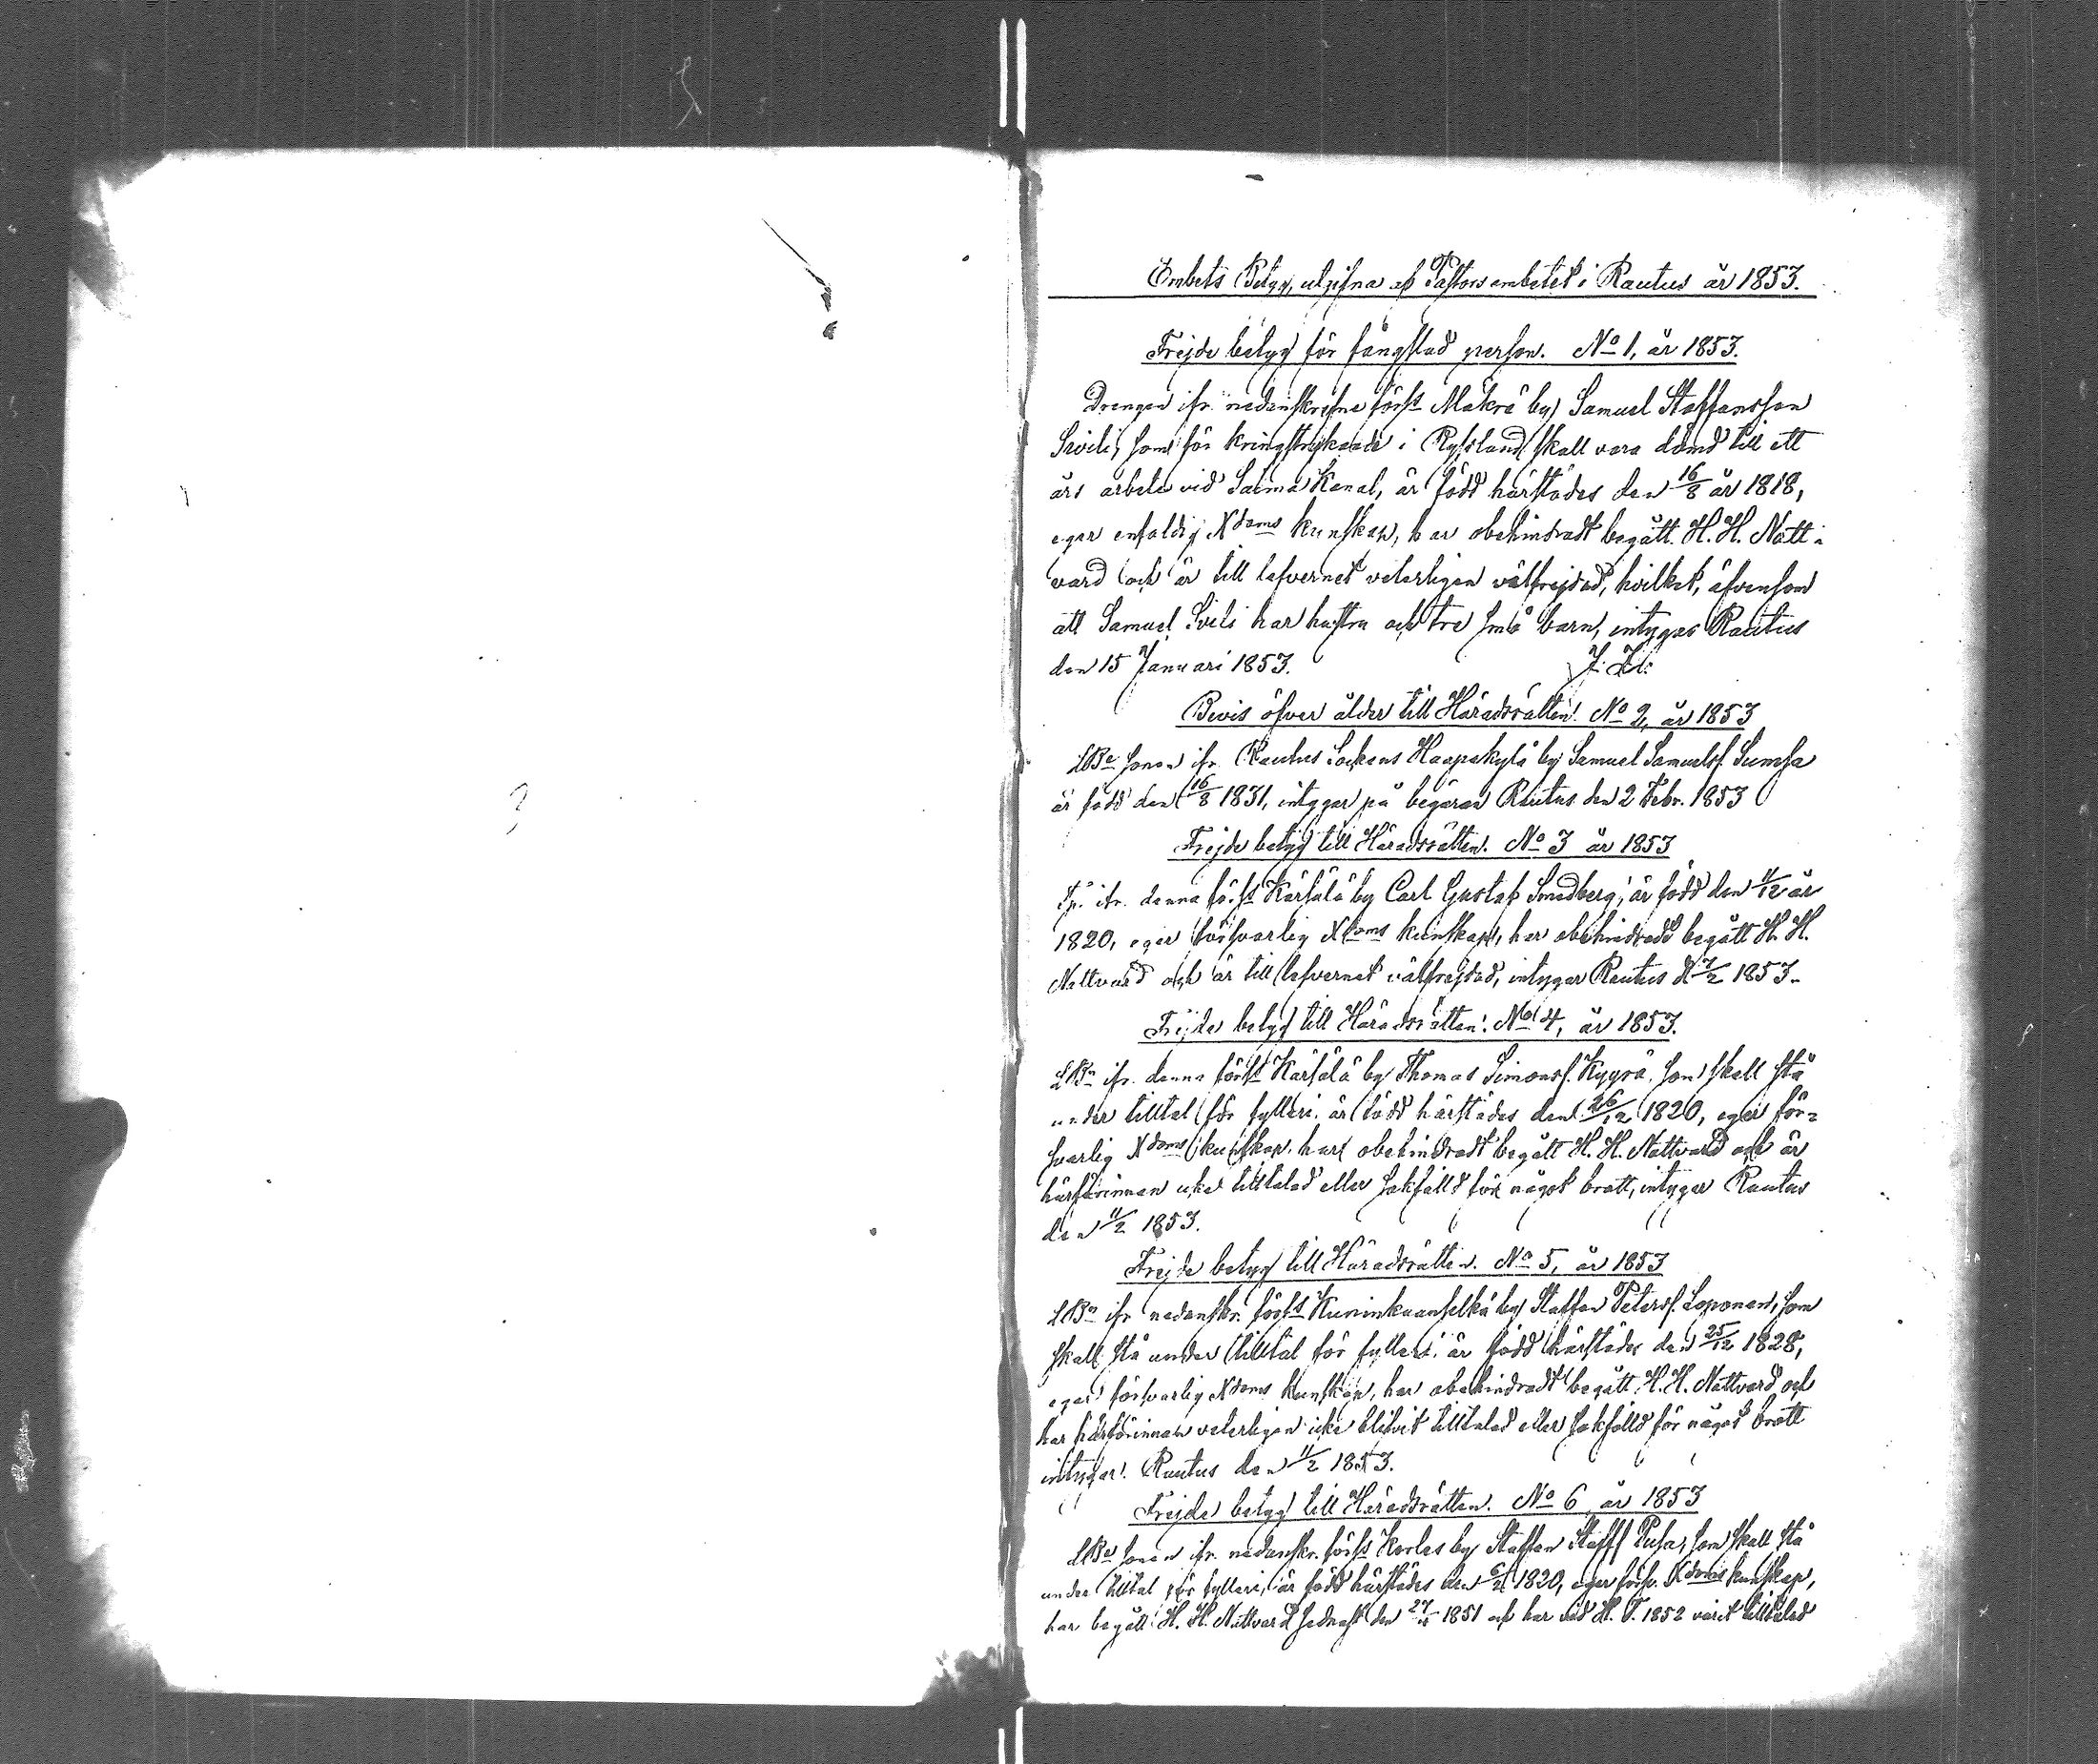 Embets Betyg, utgifna af Pastorsembetet i Rautus år 1853.
Frejde betyg för fängslad person. No 1, år 1853.
Drengen ifr. nedanskrefne förs:s Mäkrä by Samuel Staffansson
Sivili, som för kringstrykande i Ryssland skall vara dömd till ett
års arbete vid Saima Kanal, är född härstädes den 16/8 år 1818,
eger enfaldig Xdoms kunskap, har obehindradt begått H. H. Natt-
vard och är till lefvernet veterligen välfrejdad, hvilket, äfvensom
att Samuel Sivili har hustru och tre små barn, intygas Rautus
den 15 Januari 1853.
Bevis öfver ålder till Häradsrätten. No 2, år 1853
LBde sonen ifr. Rautus Sockens Haapakylä by Samuel Samuelss.
är född den 16/8 1831, intygar på begäran Rautus den 2 Febr. 1853
Frejde betyg till Häradsrätten. No 3 år 1853
ifr. denna förs:s Kärsälä by Carl Gustaf Smedberg, är född den 11/12 år
1820, eger försvarlig Xdoms kunskap, har obehindradt begått H. H.
Nattvard och är till lefvernet välfrejdad, intygar Rautus d. 7/2 1853.
Frejde betyg till Häradsrätten. No 4, år 1853.
LBn ifr. denna förs:s Kärsälä by Thomas Simonss. Kyyrä, som skall stå
under tilltal för fylleri, är född härstädes den 26/12 1820, eger för=
svarlig Xdoms kunskap, har obehindradt begått H. H. Nattvard och är
härförinnan icke tilltalad eller sakfälld för något brott, intygar Rautus
den 11/2 1853.
Frejde betyg till Häradsrätten. No 5, år 1853
LBn ifr nedanskr. förs:s Kuninkaanselkä by Staffan Peterss. Loponen, som
skall stå under tilltal för fylleri, är född härstädes den 25/12 1828,
eger försvarlig Xdoms kunskap, har obehindradt begått H. H. Nattvard och
har härförinnan veterligen icke blifvit tilltalad eller sakfälld för något brott
intygar. Rautus den 11/2 1853.
Frejde betyg till Häradsrätten. No 6 år 1853
LBde sonen ifr. nedanskr. förs:s Korles by Staffan Staffs Pusa, som skall stå
under tilltal för fylleri, är född härstädes den 6/2 1820, eger förs. Xdoms kunskap,
har begått H. H. Nattvard sednast den 1851 och har vid H. T. 1852 varit tilltalad